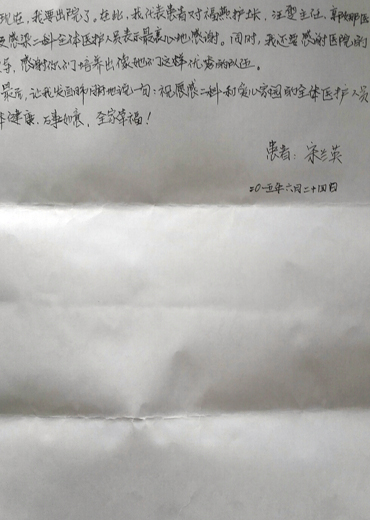 现在,我要出院了。在此,我代表患者对福燕护士长、汪雯主任、郭
感染二科全体医护人员表示最衷心地感谢。同时,我还要感谢医院的
导,感谢你们培养出像她们这样优秀的队伍。
最后,让我发自肺腑地说一句:祝愿感二科和爱心家园的全体医护人员
健康,万事如意,全家幸福!
患者:宋兰英
二〇一五年六月二十四日